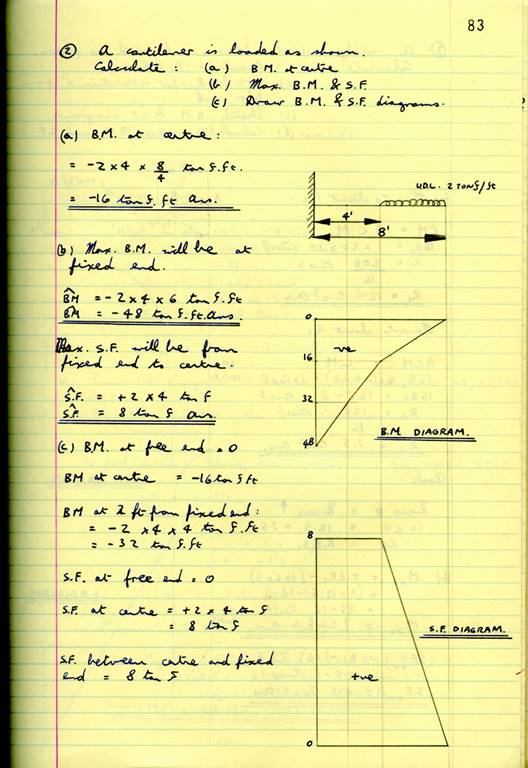 83
② A cantilever is loaded as shown.
Calculate : (a) B.M. at centre
(b) Max. B.M. & S.F.
(c) Draw B.M. & S.F. diagrams.
(a) B.M. at centre :
= -2 x 4 x 8/4 ton f. ft.
= -16 ton f. ft Ans.
U.D.L. 2 TONf/ft
4'
8'
(b) Max. B.M. will be at
fixed end.
BM = -2 x 4 x 6 ton f. ft
BM = -48 ton f. ft. Ans.
Max. S.F. will be from
fixed end to centre.
S.F. = +2 x 4 ton f
S.F. = 8 ton f Ans.
0
-ve
16
32
48
B.M DIAGRAM.
(c) B.M. at free end = 0
BM at centre = -16 ton f ft
BM at 2 ft from fixed end :
= -2 x 4 x 4 ton f. ft
= -32 ton f. ft
S.F. at free end = 0
S.F. at centre = +2 x 4 ton f
= 8 ton f
S.F. between centre and fixed
end = 8 ton f
8
S.F. DIAGRAM.
+ve
0